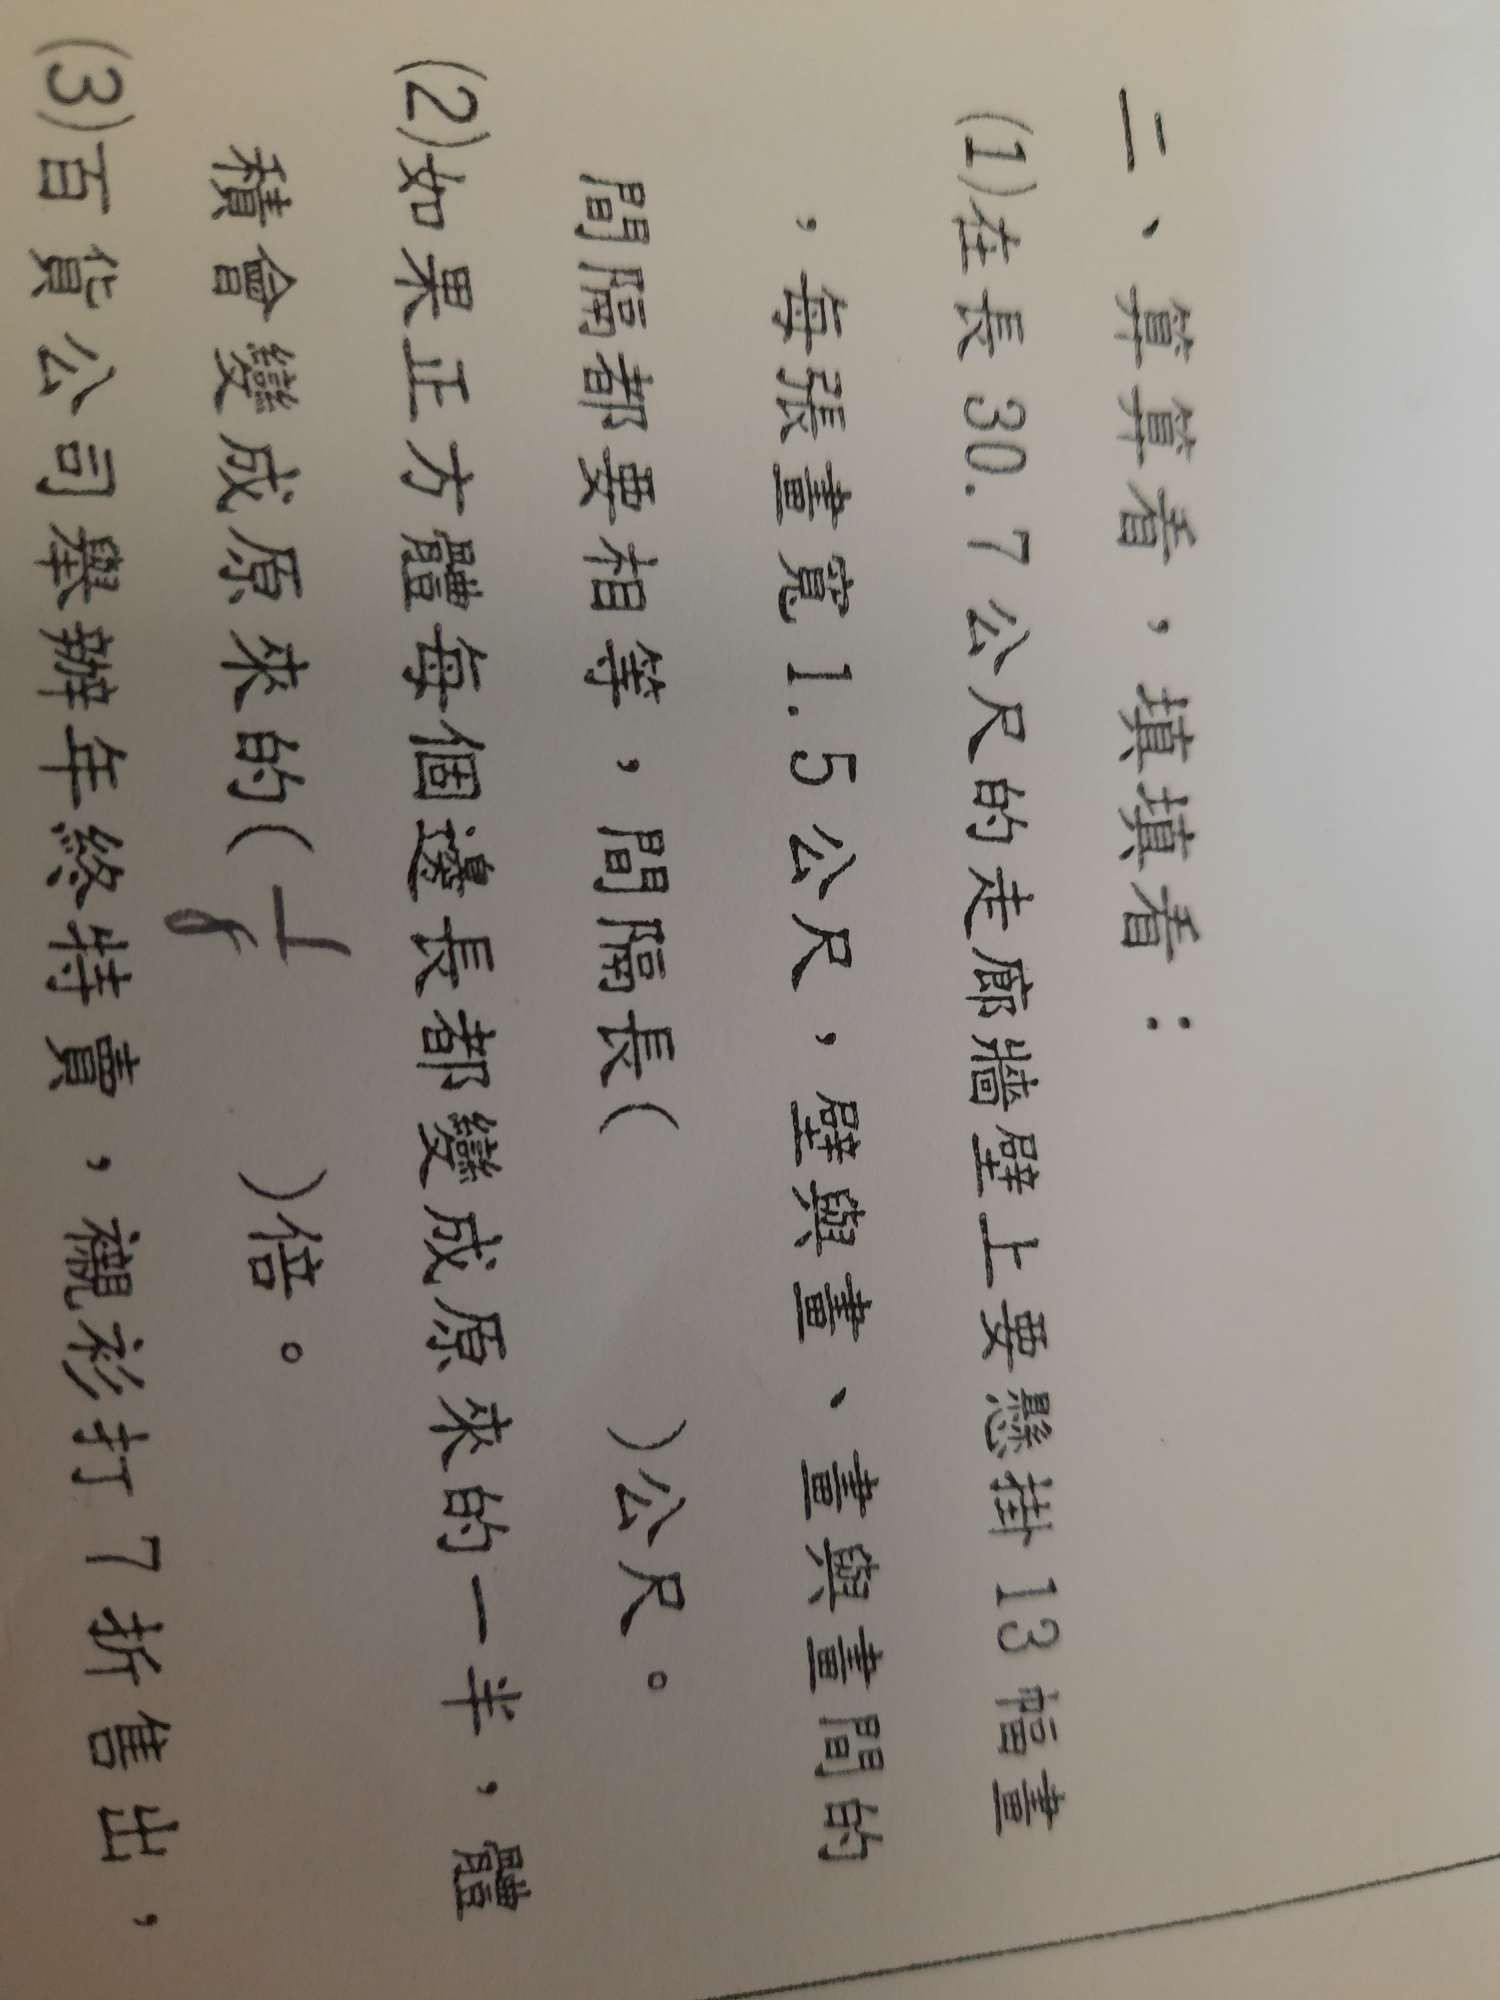 二、算算看，填填看：
(1)在長 30.7 公尺的走廊牆壁上要懸掛 13 幅畫
，每張畫寬 1.5 公尺，壁與畫、畫與畫間的
間隔都要相等，間隔長( )公尺。
(2)如果正方體每個邊長都變成原來的一半，體
積會變成原來的( 1/8 )倍。
(3)百貨公司舉辦年終特賣，襯衫打 7 折售出，